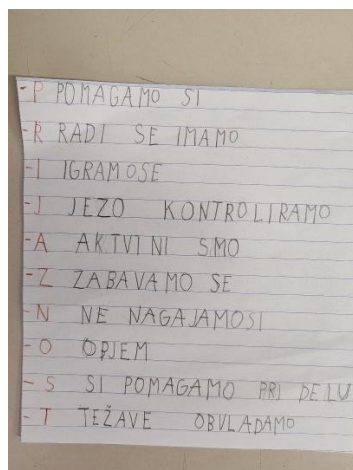 -P POMAGAMO SI
-R RADI SE IMAMO
-I IGRAMOSE
-J JEZO KONTROLIRAMO
-A AKTVINI SMO
-Z ZABAVAMO SE
-N NE NAGAJAMOSI
-O OBJEM
-S SI POMAGAMO PRI DELU
-T TEŽAVE OBVLADAMO